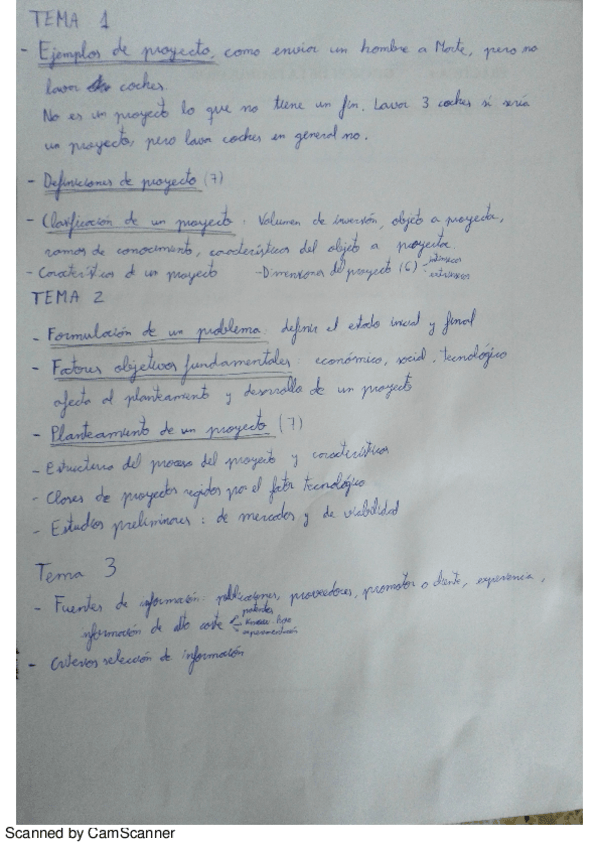 TEMA 1
- Ejemplos de proyecto, como enviar un hombre a Marte, pero no
lavar coches.
No es un proyecto lo que no tiene un fin. Lavar 3 coches si sería
un proyecto, pero lavar coches en general no.
- Definiciones de proyecto (7)
- Clasificación de un proyecto: Volumen de inversión, objeto a proyectar,
ramas de conocimiento, características del objeto a proyectar
- Características de un proyecto - Dimensiones del proyecto (6) - intrínsecas
extrínsecas
TEMA 2
- Formulación de un problema: definir el estado inicial y final
- Factores objetivos fundamentales: económico, social, tecnológico
afecta al planteamiento y desarrollo de un proyecto
- Planteamiento de un proyecto (7)
- Estructura del proceso del proyecto y características
- Clases de proyectos regidos por el factor tecnológico
- Estudios preliminares: de mercados y de viabilidad
Tema 3
- Fuentes de información: publicaciones, proveedores, promotor o cliente, experiencia,
información de alto coste - patentes
- know-how
- experimentación
- Criterios selección de información
Scanned by CamScanner